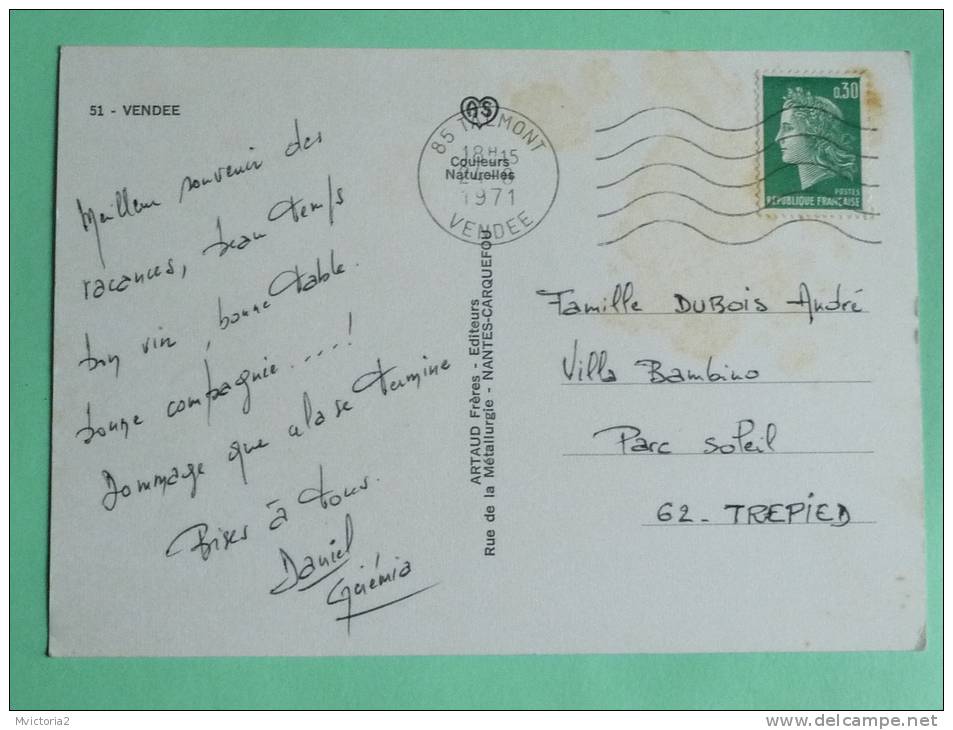 51 - VENDEE
Meilleur souvenir des
vacances, beau temps
bon vin, bonne table.
bonne compagnie....!
Dommage que cela se termine
Bises à tous.
Daniel
AS
85 TALMONT
18H15
1971
VENDEE
Couleurs
Naturelles
ARTAUD Frères - Editeurs
Rue de la Métallurgie - NANTES-CARQUEFOU
0,30
POSTES
REPUBLIQUE FRANÇAISE
Famille DUBOIS André
Villa Bambino
Parc Soleil
62 - TREPIED
Mvictoria2
www.delcampe.net